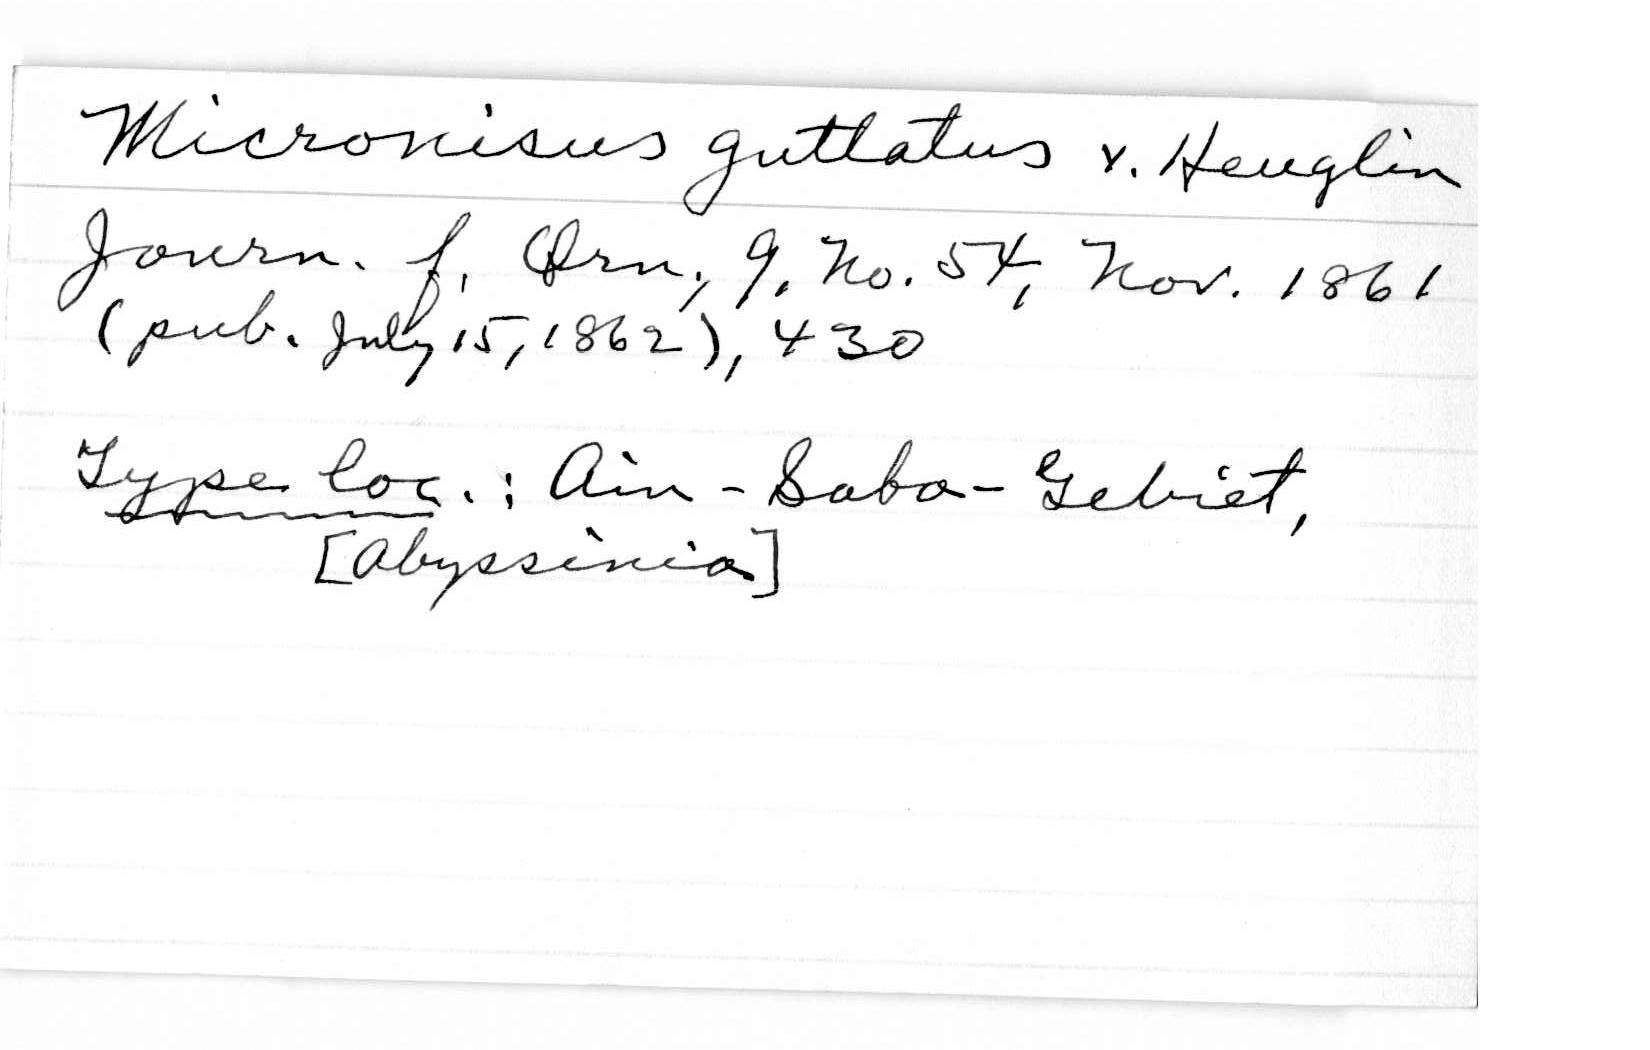 Micronisus guttatus v. Heuglin
Journ. f. Orn., 9, No. 54, Nov. 1861
(pub. July 15, 1862), 430
Type loc.: Ain-Saba-Gebiet,
[Abyssinia]